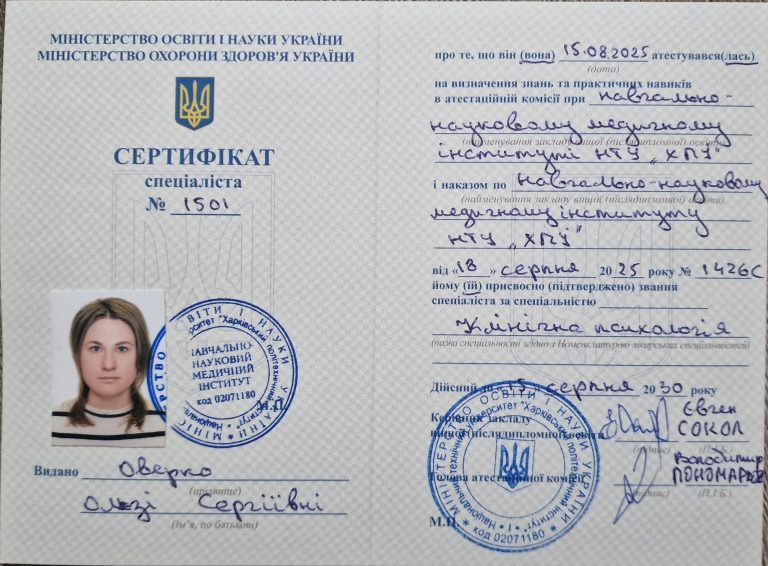 МІНІСТЕРСТВО ОСВІТИ І НАУКИ УКРАЇНИ
МІНІСТЕРСТВО ОХОРОНИ ЗДОРОВ'Я УКРАЇНИ
СЕРТИФІКАТ
спеціаліста
№ 1501
НАВЧАЛЬНО-
НАУКОВИЙ
МЕДИЧНИЙ
ІНСТИТУТ
код 02071180
Видано Оверко
(прізвище)
Ользі Сергіївні
(ім'я, по батькові)
про те, що він (вона) 15.08.2025 атестувався(лась)
(дата)
на визначення знань та практичних навиків
в атестаційній комісії при навчально-
науковому медичному
(найменування закладу вищої (післядипломної) освіти)
інституті НТУ „ХПІ"
і наказом по навчально-науковому
(найменування закладу вищої (післядипломної) освіти)
медичному інституту
НТУ „ХПІ"
від «18» серпня 2025 року № 1426С
йому (їй) присвоєно (підтверджено) звання
спеціаліста за спеціальністю
Клінічна психологія
(назва спеціальності згідно з Номенклатурою лікарських спеціальностей)
Дійсний до «15» серпня 2030 року
Керівник закладу
вищої (післядипломної) освіти
Євген
СОКОЛ
(підпис) (П.І.Б.)
Голова атестаційної комісії
Володимир
ПОНОМАРЬОВ
(підпис) (П.І.Б.)
М.П.
МІНІСТЕРСТВО ОСВІТИ І НАУКИ УКРАЇНИ
Національний технічний університет "Харківський політехнічний інститут"
код 02071180